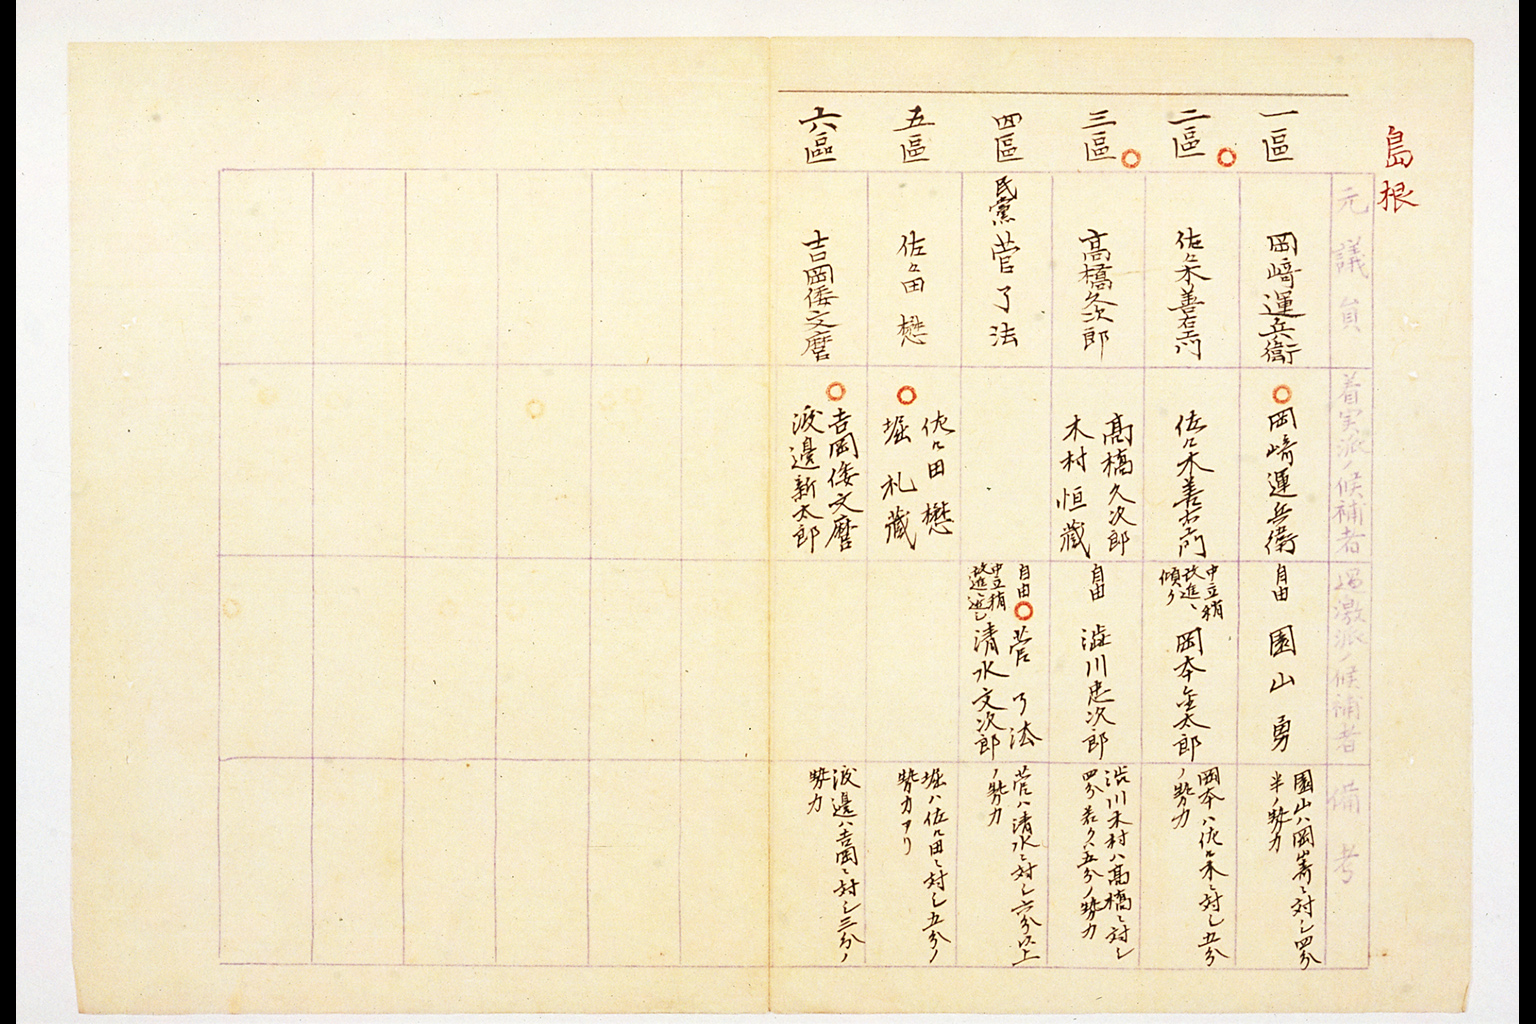 島根
元議員
着実派ノ候補者
過激派ノ候補者
備考
一區
岡﨑運兵衛
岡﨑運兵衛
自由
園山勇
園山ハ岡﨑ニ対シ四分
半ノ勢力
二區
佐々木善右衛門
佐々木善右衛門
中立稍
改進ニ
傾ク
岡本金太郎
岡本ハ佐々木ニ対シ五分
ノ勢力
三區
高橋久次郎
髙橋久次郎
木村恒蔵
自由
澁川忠次郎
渋川木村ハ髙橋ニ対シ
四分若クハ五分ノ勢力
四區
民黨
菅了法
自由
菅了法
中立稍
改進ニ近シ
清水文次郎
菅ハ清水ニ対シ六分以上
ノ勢力
五區
佐々田懋
佐々田懋
堀礼蔵
堀ハ佐々田ニ対シ五分ノ
勢力アリ
六區
吉岡倭文麿
吉岡倭文麿
渡邊新太郎
渡邊ハ吉岡ニ対シ三分ノ
勢力